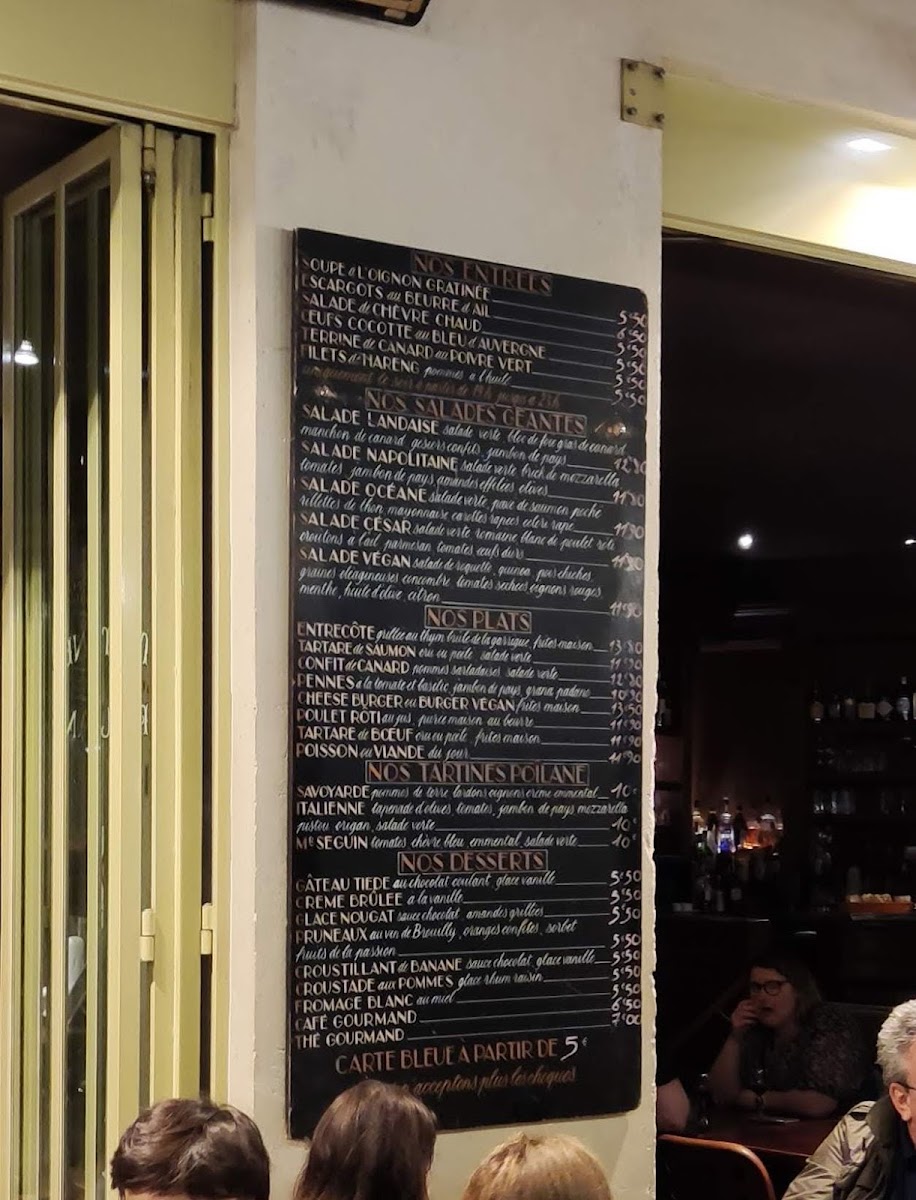 NOS ENTREES
SOUPE à L'OIGNON GRATINÉE 5€50
ESCARGOTS au BEURRE d'AIL 6€50
SALADE de CHÈVRE CHAUD 5€50
ŒUFS COCOTTE au BLEU d'AUVERGNE 5€50
TERRINE de CANARD au POIVRE VERT 5€50
FILETS de HARENG pommes à l'huile 5€50
uniquement le soir à partir de 18h jusqu'à 23h
NOS SALADES GEANTES
SALADE LANDAISE salade verte, bloc de foie gras de canard
manchon de canard, gesiers confits, jambon de pays
SALADE NAPOLITAINE salade verte, brick de mozzarella
tomates, jambon de pays, amandes effilées, olives 11€90
SALADE OCÉANE salade verte, pavé de saumon poché
rillettes de thon, mayonnaise, carottes rapées, celeri rapé 11€90
SALADE CÉSAR salade verte romaine, blanc de poulet rôti
croutons à l'ail, parmesan, tomates, œufs durs 11€90
SALADE VÉGAN salade de roquette, quinoa, pois chiches,
graines oléagineuses, concombre, tomates sechées, oignons rouges,
menthe, huile d'olive, citron 11€90
NOS PLATS
ENTRECÔTE grillée au thym, brulé de la garrigue, frites maison
TARTARE de SAUMON cru ou poêlé, salade verte 11€90
CONFIT de CANARD pommes sarladaises, salade verte
PENNES à la tomate et basilic, jambon de pays, grana padano
CHEESE BURGER ou BURGER VEGAN frites maison 13€50
POULET ROTI au jus, purée maison au beurre 11€90
TARTARE de BŒUF cru ou poêlé, frites maison 11€90
POISSON ou VIANDE du jour 11€90
NOS TARTINES POÏLANE
SAVOYARDE pommes de terre, lardons, oignons, crème, emmental 10€
ITALIENNE tapenade d'olives, tomates, jambon de pays, mozzarella
pistou, origan, salade verte 10€
Mr SEGUIN tomates, chèvre, bleu, emmental, salade verte 10€
NOS DESSERTS
GÂTEAU TIEDE au chocolat coulant, glace vanille 5€50
CREME BRÛLEE à la vanille 5€50
GLACE NOUGAT sauce chocolat, amandes grillées 5€50
PRUNEAUX au vin de Brouilly, oranges confites, sorbet
fruits de la passion 5€50
CROUSTILLANT de BANANE sauce chocolat, glace vanille 5€50
CROUSTADE aux POMMES glace rhum raisin 5€50
FROMAGE BLANC au miel 5€50
CAFÉ GOURMAND 6€50
THÉ GOURMAND 7€00
CARTE BLEUE À PARTIR DE 5€
acceptons plus les cheques